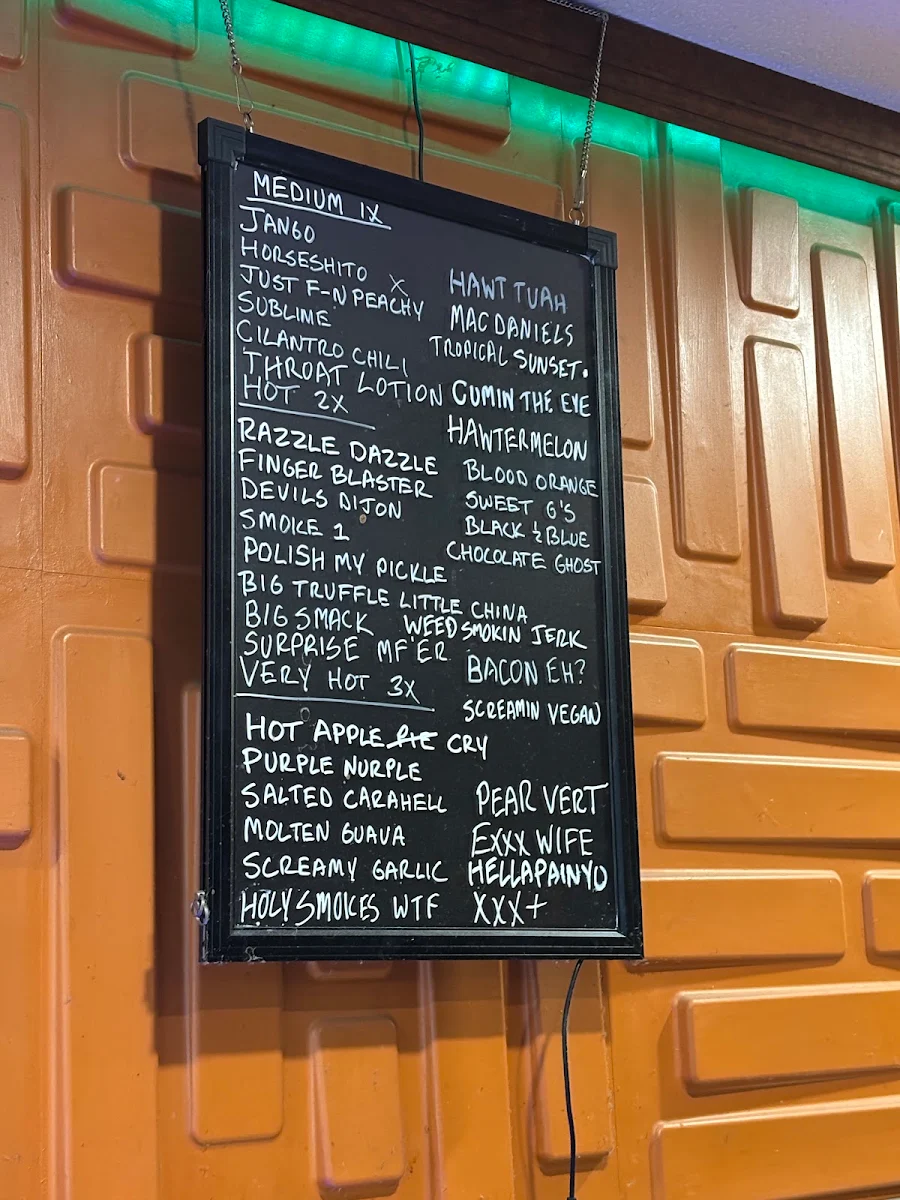 MEDIUM 1X
JANGO
HORSESHITO X
JUST F-N PEACHY
SUBLIME
CILANTRO CHILI
THROAT LOTION
HAWT TUAH
MAC DANIELS
TROPICAL SUNSET.
HOT 2X
RAZZLE DAZZLE
FINGER BLASTER
DEVILS DIJON
SMOKE 1
POLISH MY PICKLE
BIG TRUFFLE LITTLE CHINA
BIG SMACK
SURPRISE MF'ER
CUMIN THE EYE
HAWTERMELON
BLOOD ORANGE
SWEET G'S
BLACK ½ BLUE
CHOCOLATE GHOST
WEED SMOKIN JERK
BACON EH?
SCREAMIN VEGAN
VERY HOT 3X
HOT APPLE PIE CRY
PURPLE NURPLE
SALTED CARAHELL
MOLTEN GUAVA
SCREAMY GARLIC
HOLY SMOKES WTF
PEAR VERT
EXXX WIFE
HELLAPAINYO
XXX+